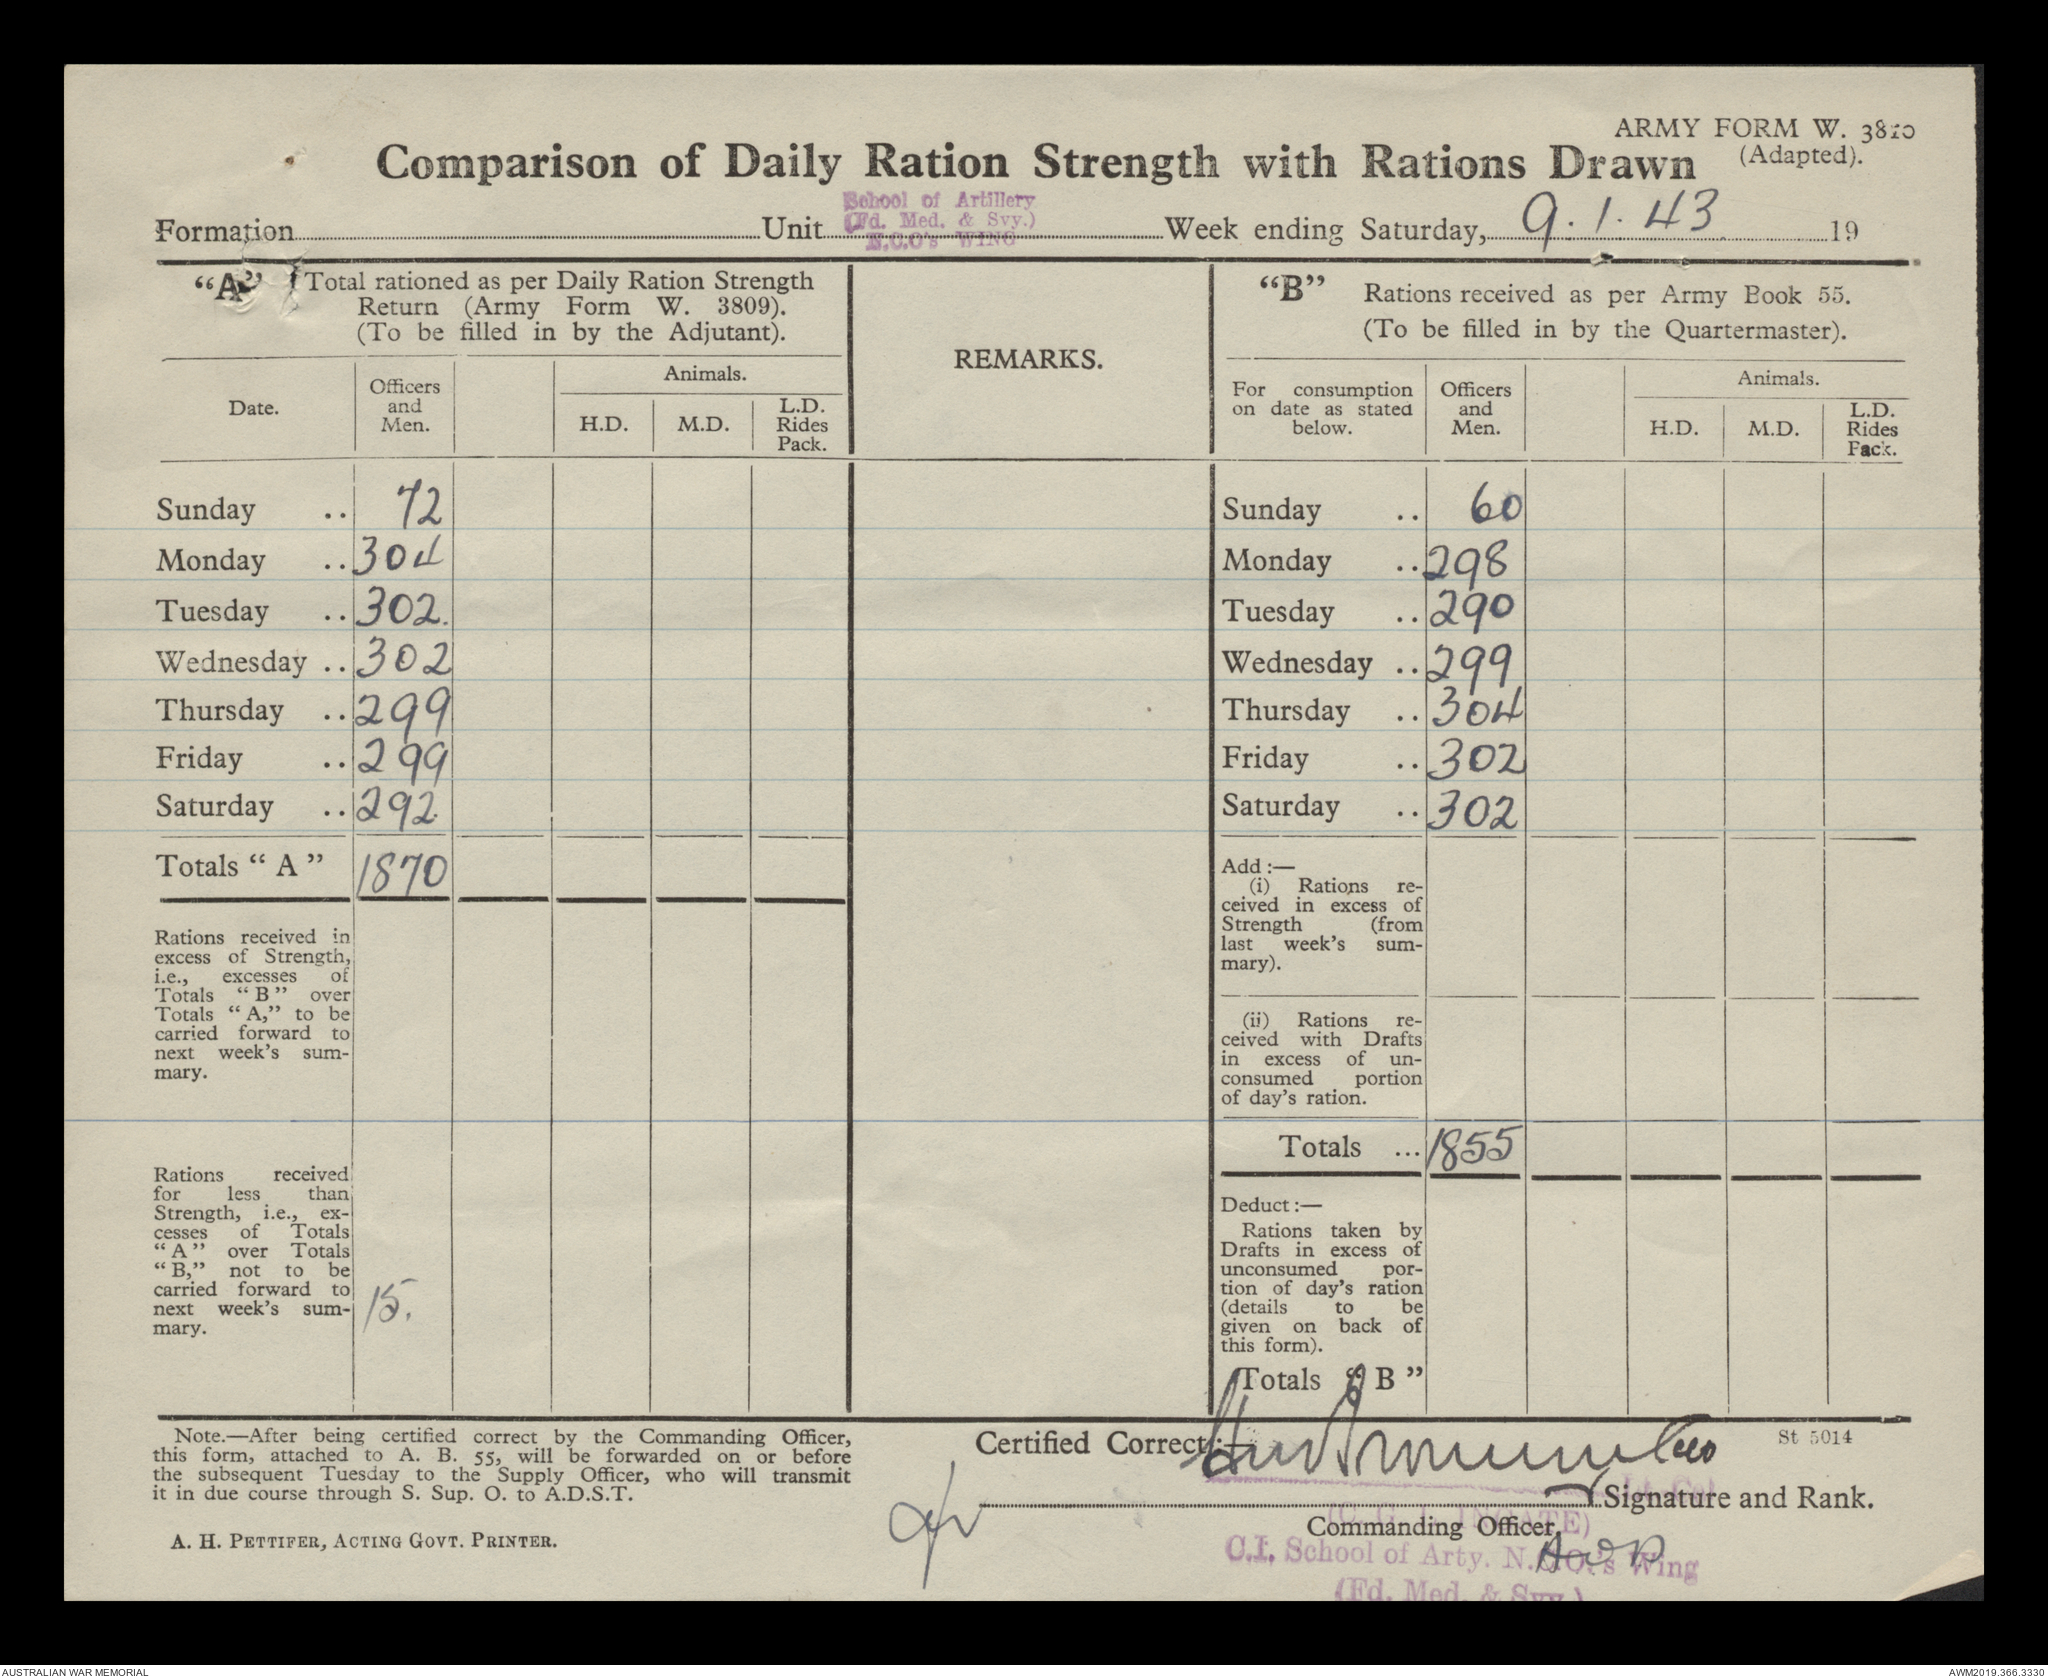 ARMY FORM W. 3810
(Adapted).
Comparison of Daily Ration Strength with Rations Drawn
School of Artillery
(Fd. Med. & Svy.)
N.C.O's WING
Formation Unit Week ending Saturday, 9.1.43 19
"A" Total rationed as per Daily Ration Strength
Return (Army Form W. 3809).
(To be filled in by the Adjutant).
Date.
Officers
and
Men.
Animals.
H.D.
M.D.
L.D.
Rides
Pack.
Sunday .. 72
Monday .. 304
Tuesday .. 302.
Wednesday .. 302
Thursday .. 299
Friday .. 299
Saturday .. 292
Totals "A" 1870
Rations received in
excess of Strength,
i.e., excesses of
Totals "B" over
Totals "A," to be
carried forward to
next week's sum-
mary.
Rations received
for less than
Strength, i.e., ex-
cesses of Totals
"A" over Totals
"B," not to be
carried forward to
next week's sum-
mary.
15.
REMARKS.
"B" Rations received as per Army Book 55.
(To be filled in by the Quartermaster).
For consumption
on date as stated
below.
Officers
and
Men.
Animals.
H.D.
M.D.
L.D.
Rides
Pack.
Sunday .. 60
Monday .. 298
Tuesday .. 290
Wednesday .. 299
Thursday .. 304
Friday .. 302
Saturday .. 302
Add :—
(i) Rations re-
ceived in excess of
Strength (from
last week's sum-
mary).
(ii) Rations re-
ceived with Drafts
in excess of un-
consumed portion
of day's ration.
Totals ... 1855
Deduct :—
Rations taken by
Drafts in excess of
unconsumed por-
tion of day's ration
(details to be
given on back of
this form).
Totals "B"
Note.—After being certified correct by the Commanding Officer,
this form, attached to A. B. 55, will be forwarded on or before
the subsequent Tuesday to the Supply Officer, who will transmit
it in due course through S. Sup. O. to A.D.S.T.
A. H. PETTIFER, ACTING GOVT. PRINTER.
Certified Correct :—
St 5014
Lt-Col
Signature and Rank.
Commanding Officer.
C.I. School of Arty. N.C.O.'s Wing
(Fd. Med. & Svy.)
AUSTRALIAN WAR MEMORIAL
AWM2019.366.3330